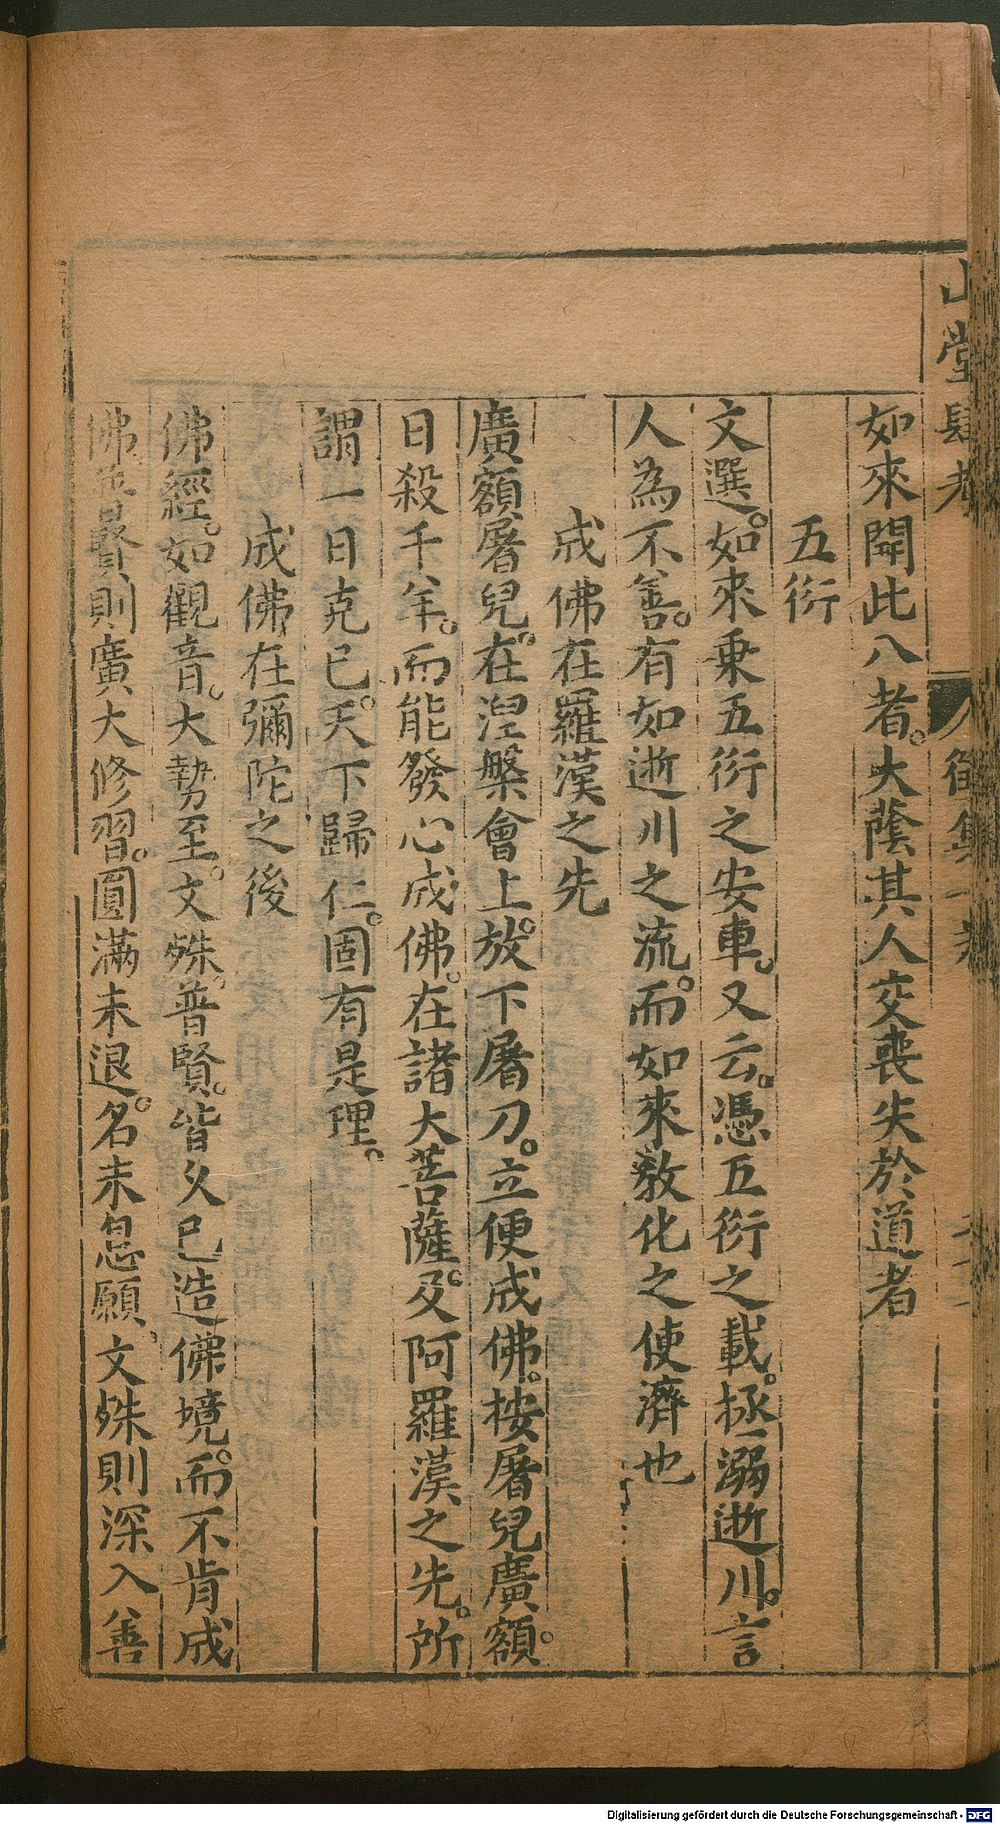 山堂肆考
徵集
如來開此八者。大蔭其人交喪失於道者
五衍
文選。如來乗五衍之安車。又云。憑五衍之載。拯溺逝川。言
人為不善。有如逝川之流。而如來教化之使濟也
成佛在羅漢之先
廣額屠兒。在涅槃會上。放下屠刀。立便成佛。按屠兒廣額。
日殺千羊。而能發心成佛。在諸大菩薩。及阿羅漢之先。所
謂一日克已。天下歸仁。固有是理。
成佛在彌陀之後
佛經。如觀音。大勢至。文殊。普賢。皆久已造佛境。而不肯成
佛。普賢則廣大修習。圓滿未退。名未息願。文殊則深入善
Digitalisierung gefördert durch die Deutsche Forschungsgemeinschaft - DFG